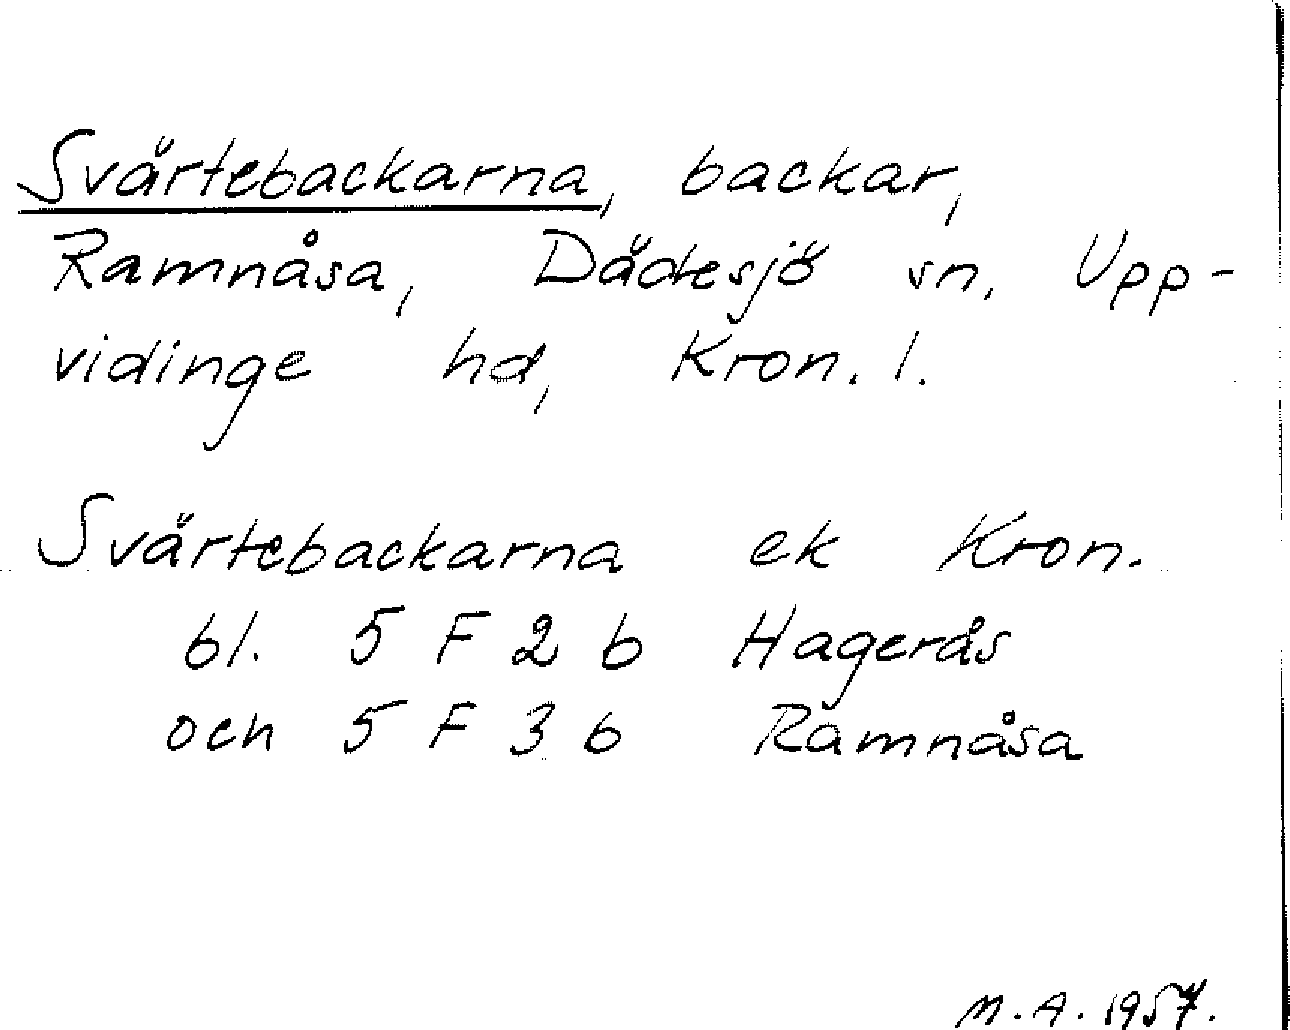 Svärtebackarna, backar,
Ramnåsa, Dädesjö sn, Upp-
vidinge hd, Kron. l.
Svärtebackarna ek Kron.
bl. 5 F 2 b Hagerås
och 5 F 3 b Ramnåsa
M.A. 1957.